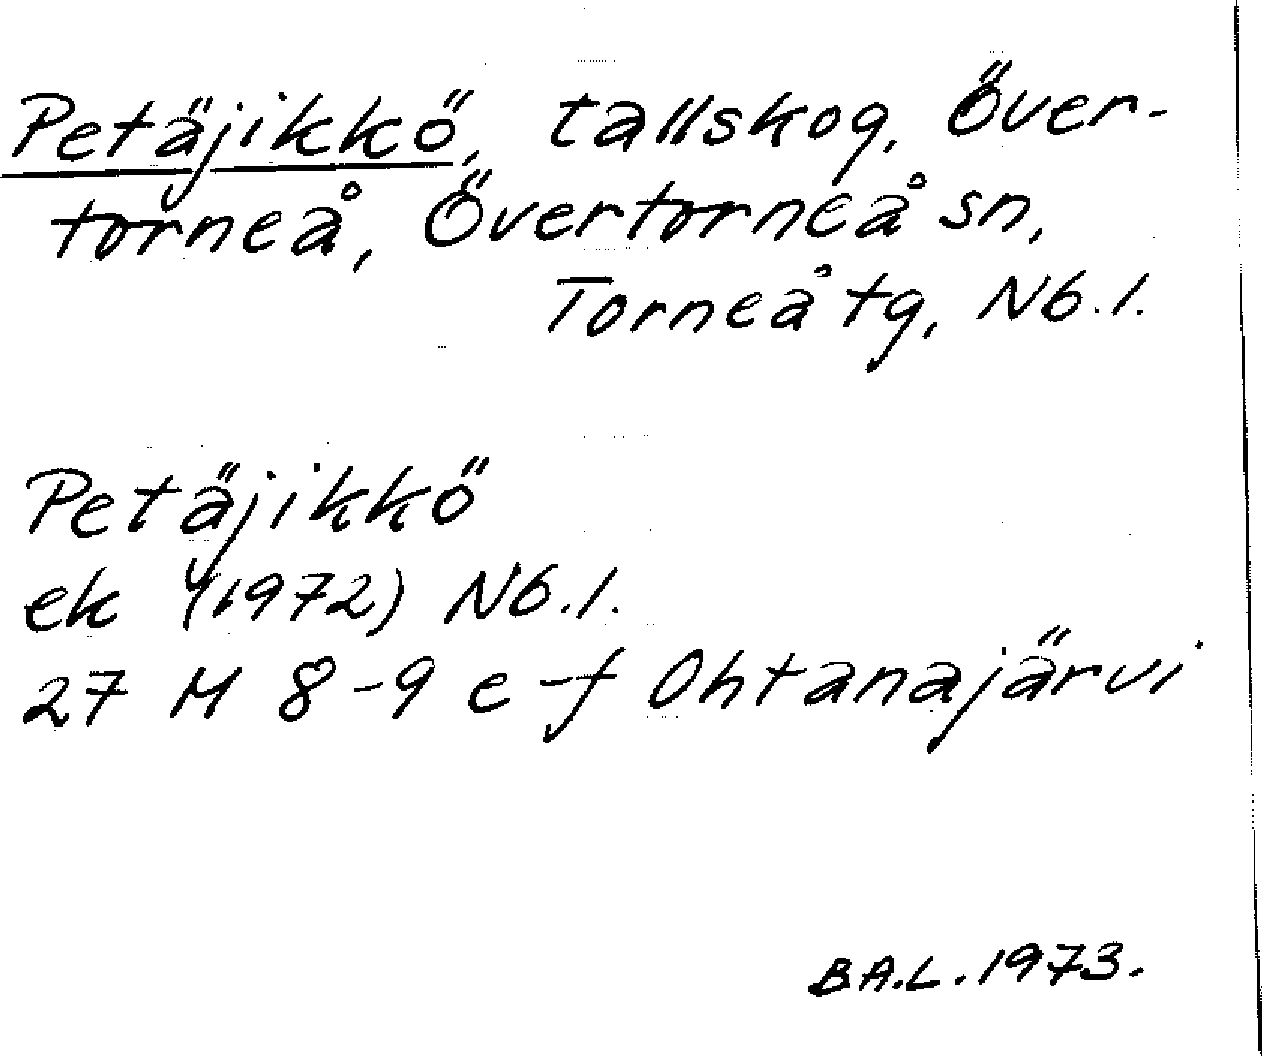 Petäjikkö, tallskog, Över-
torneå, Övertorneå sn,
Torneå tg, Nb.l.
Petäjikkö
ek (1972) Nb.l.
27 M 8-9 e-f Ohtanajärvi
BA.L. 1973.